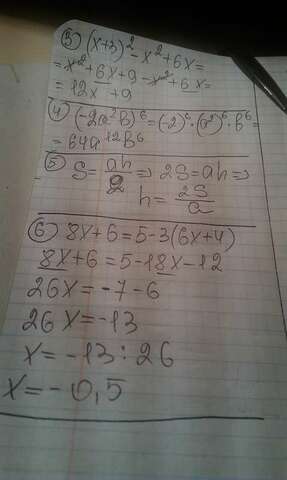 3) (x+3)² - x² + 6x =
= x² + 6x + 9 - x² + 6x =
= 12x + 9
4) (-2a²b)⁶ = (-2)⁶·(a²)⁶·b⁶ =
= 64a¹²b⁶
5) S = ah/2 ⇒ 2S = ah ⇒
h = 2S/a
6) 8x+6=5-3(6x+4)
8x+6=5-18x-12
26x=-7-6
26x=-13
x=-13:26
x=-0,5